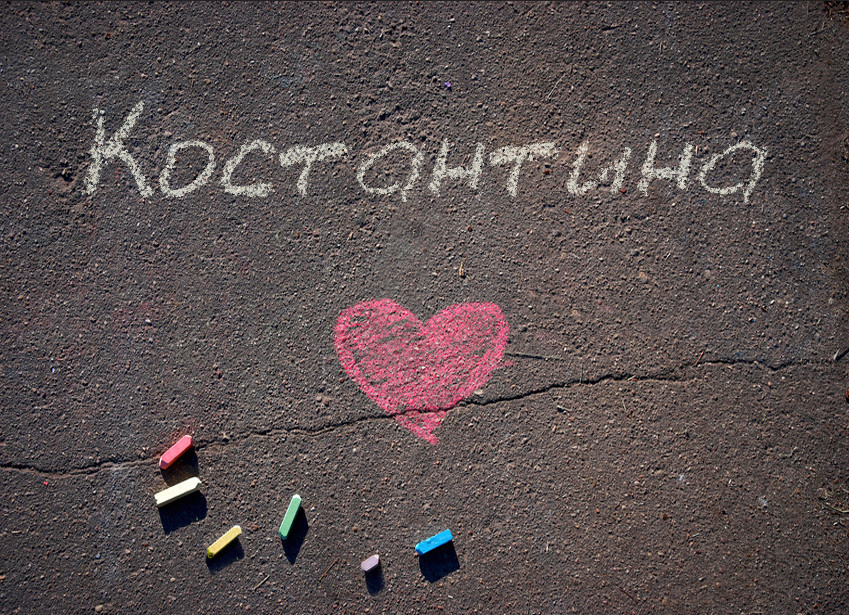 Костантина